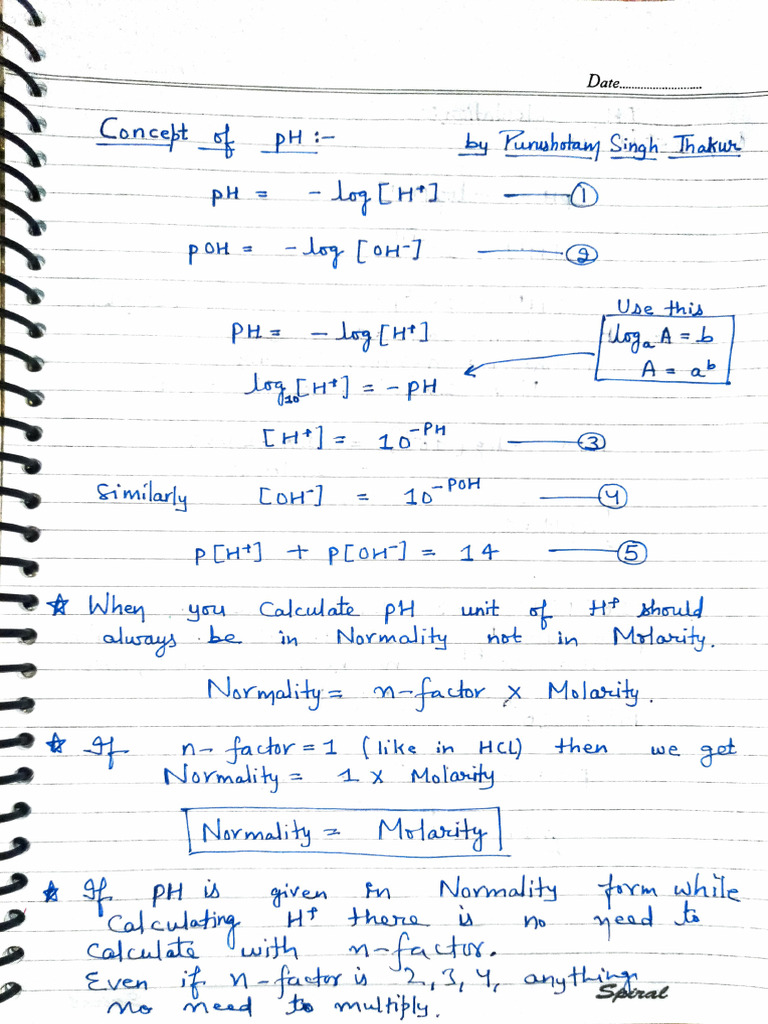 Date...........................
Concept of pH :-
by Purushotam Singh Thakur
pH = - log [H⁺] ——— ①
pOH = - log [OH⁻] ——— ②
Use this
logₐ A = b
A = aᵇ
PH = - log [H⁺]
log₁₀ [H⁺] = - PH
[H⁺] = 10^-PH ——— ③
Similarly [OH⁻] = 10^-POH ——— ④
P[H⁺] + P[OH⁻] = 14 ——— ⑤
☆ When you Calculate pH unit of H⁺ should
always be in Normality not in Molarity.
Normality = n-factor × Molarity.
☆ If n-factor = 1 (like in HCL) then we get
Normality = 1 × Molarity
Normality = Molarity
☆ If pH is given in Normality form while
Calculating H⁺ there is no need to
Calculate with n-factor.
Even if n-factor is 2, 3, 4, anything
no need to multiply.
Spiral